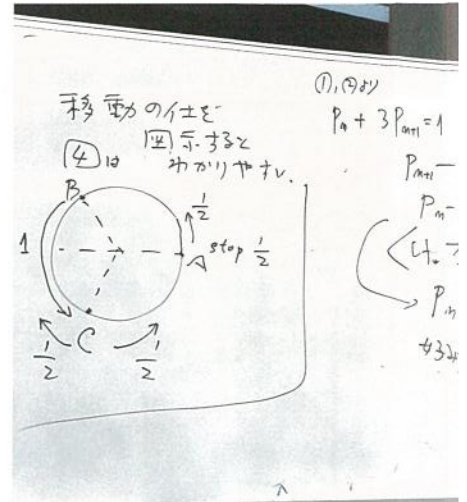 移動の仕方を
図示すると
④は わかりやすい.
B
1
1/2
A stop 1/2
C
1/2
1/2
①,②より
Pn + 3Pn+1 = 1
Pn+1 -
Pn -
Pn